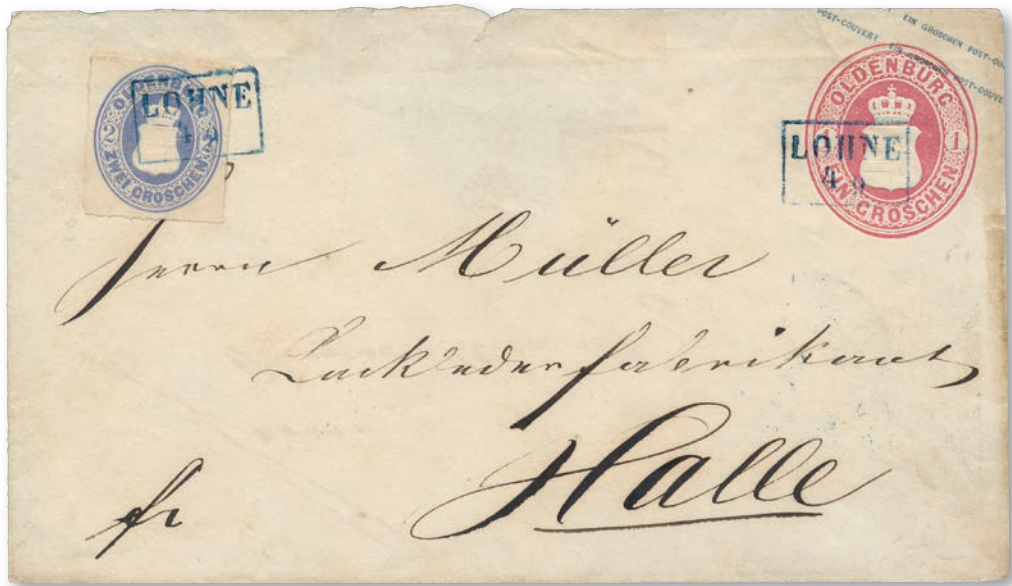 POST-COUVERT EIN GROSCHEN POST-COUVERT
EIN GROSCHEN POST-COUVERT
OLDENBURG
2 ZWEI GROSCHEN 2
LOHNE
4
OLDENBURG
1 EIN GROSCHEN 1
LOHNE
4
Herrn Müller
Lacklederfabrikant
Halle
fr